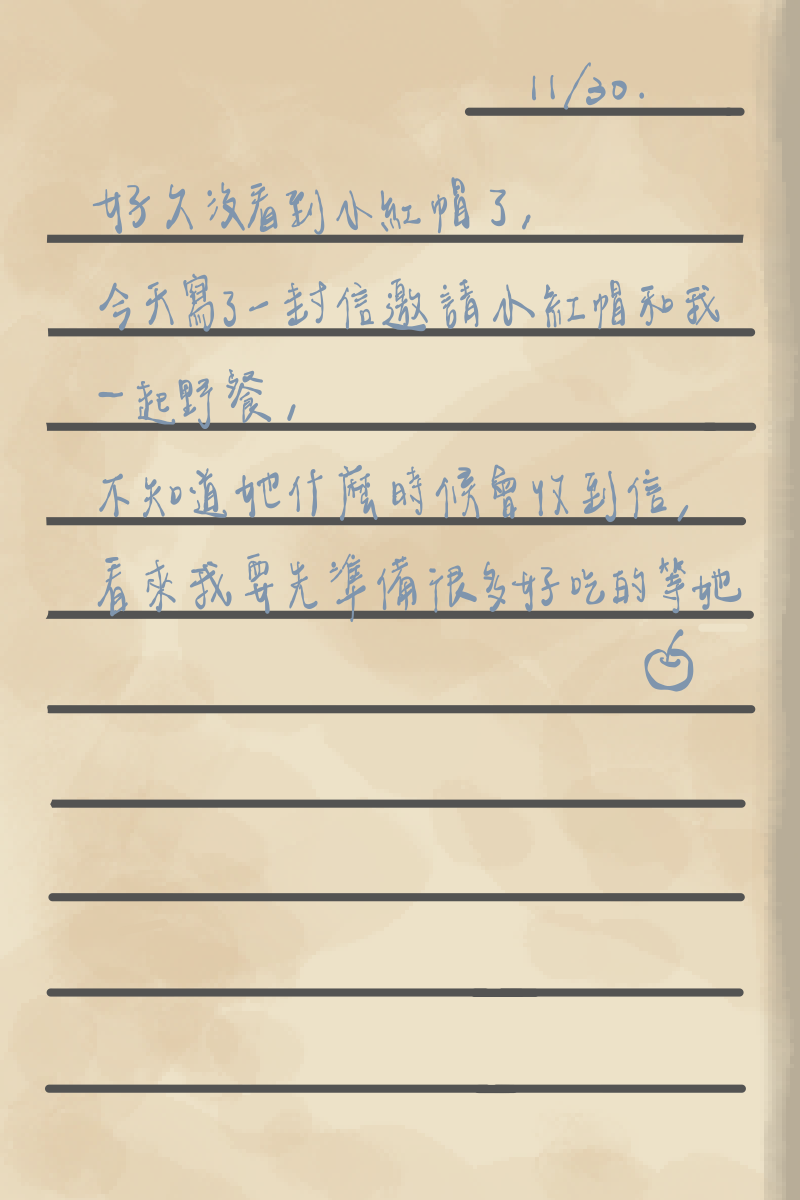 11/30.
好久沒看到小紅帽了,
今天寫了一封信邀請小紅帽和我
一起野餐,
不知道她什麼時候會收到信,
看來我要先準備很多好吃的等她